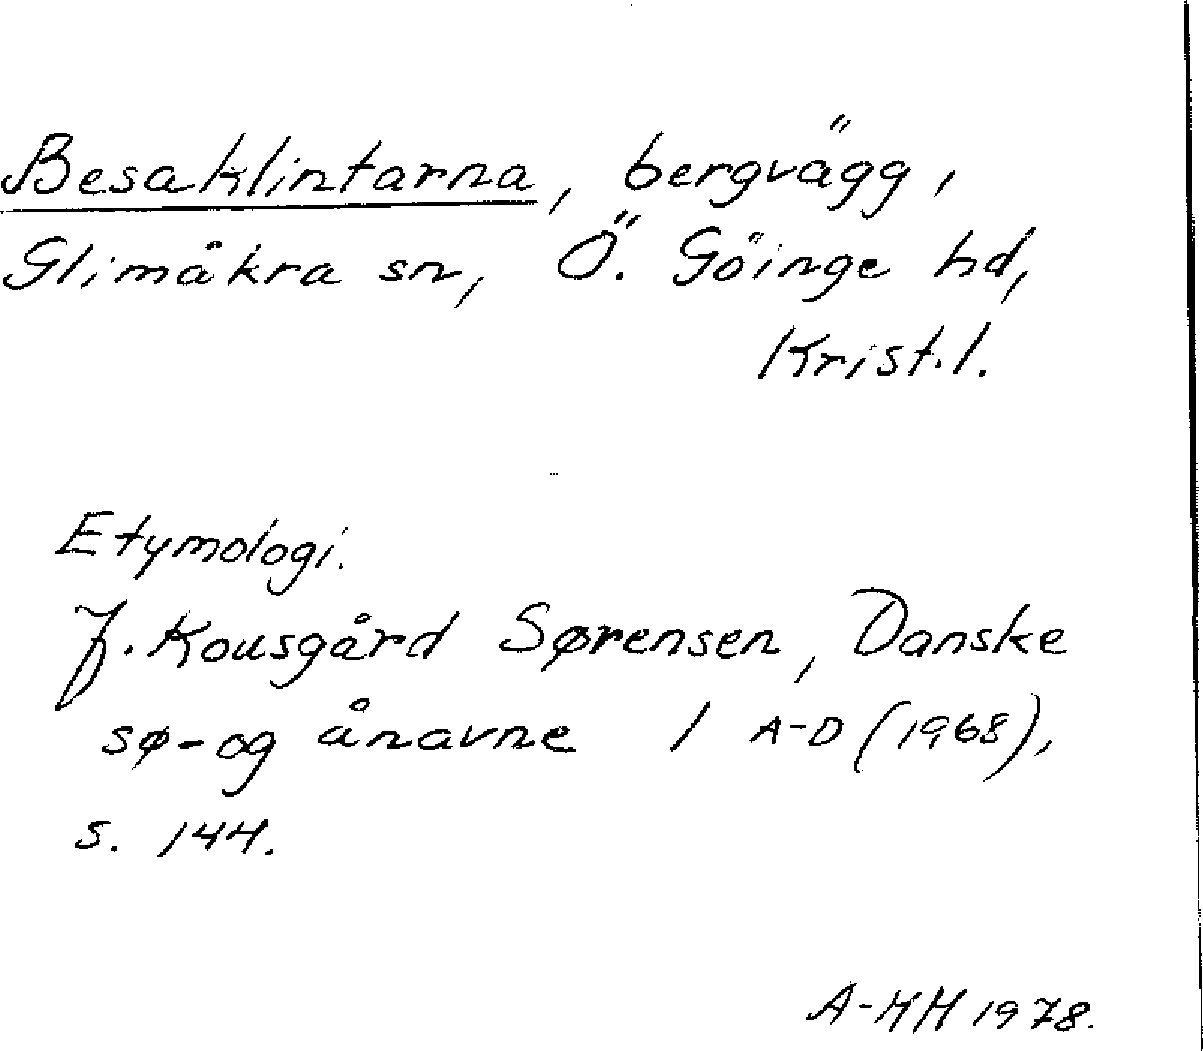 Besaklintarna, bergvägg,
Glimåkra sn, Ö. Göinge hd,
Krist.l.
Etymologi.
J. Kousgård Sørensen, Danske
sø- og ånavne 1 A-D (1968),
s. 144.
A-KH 1978.